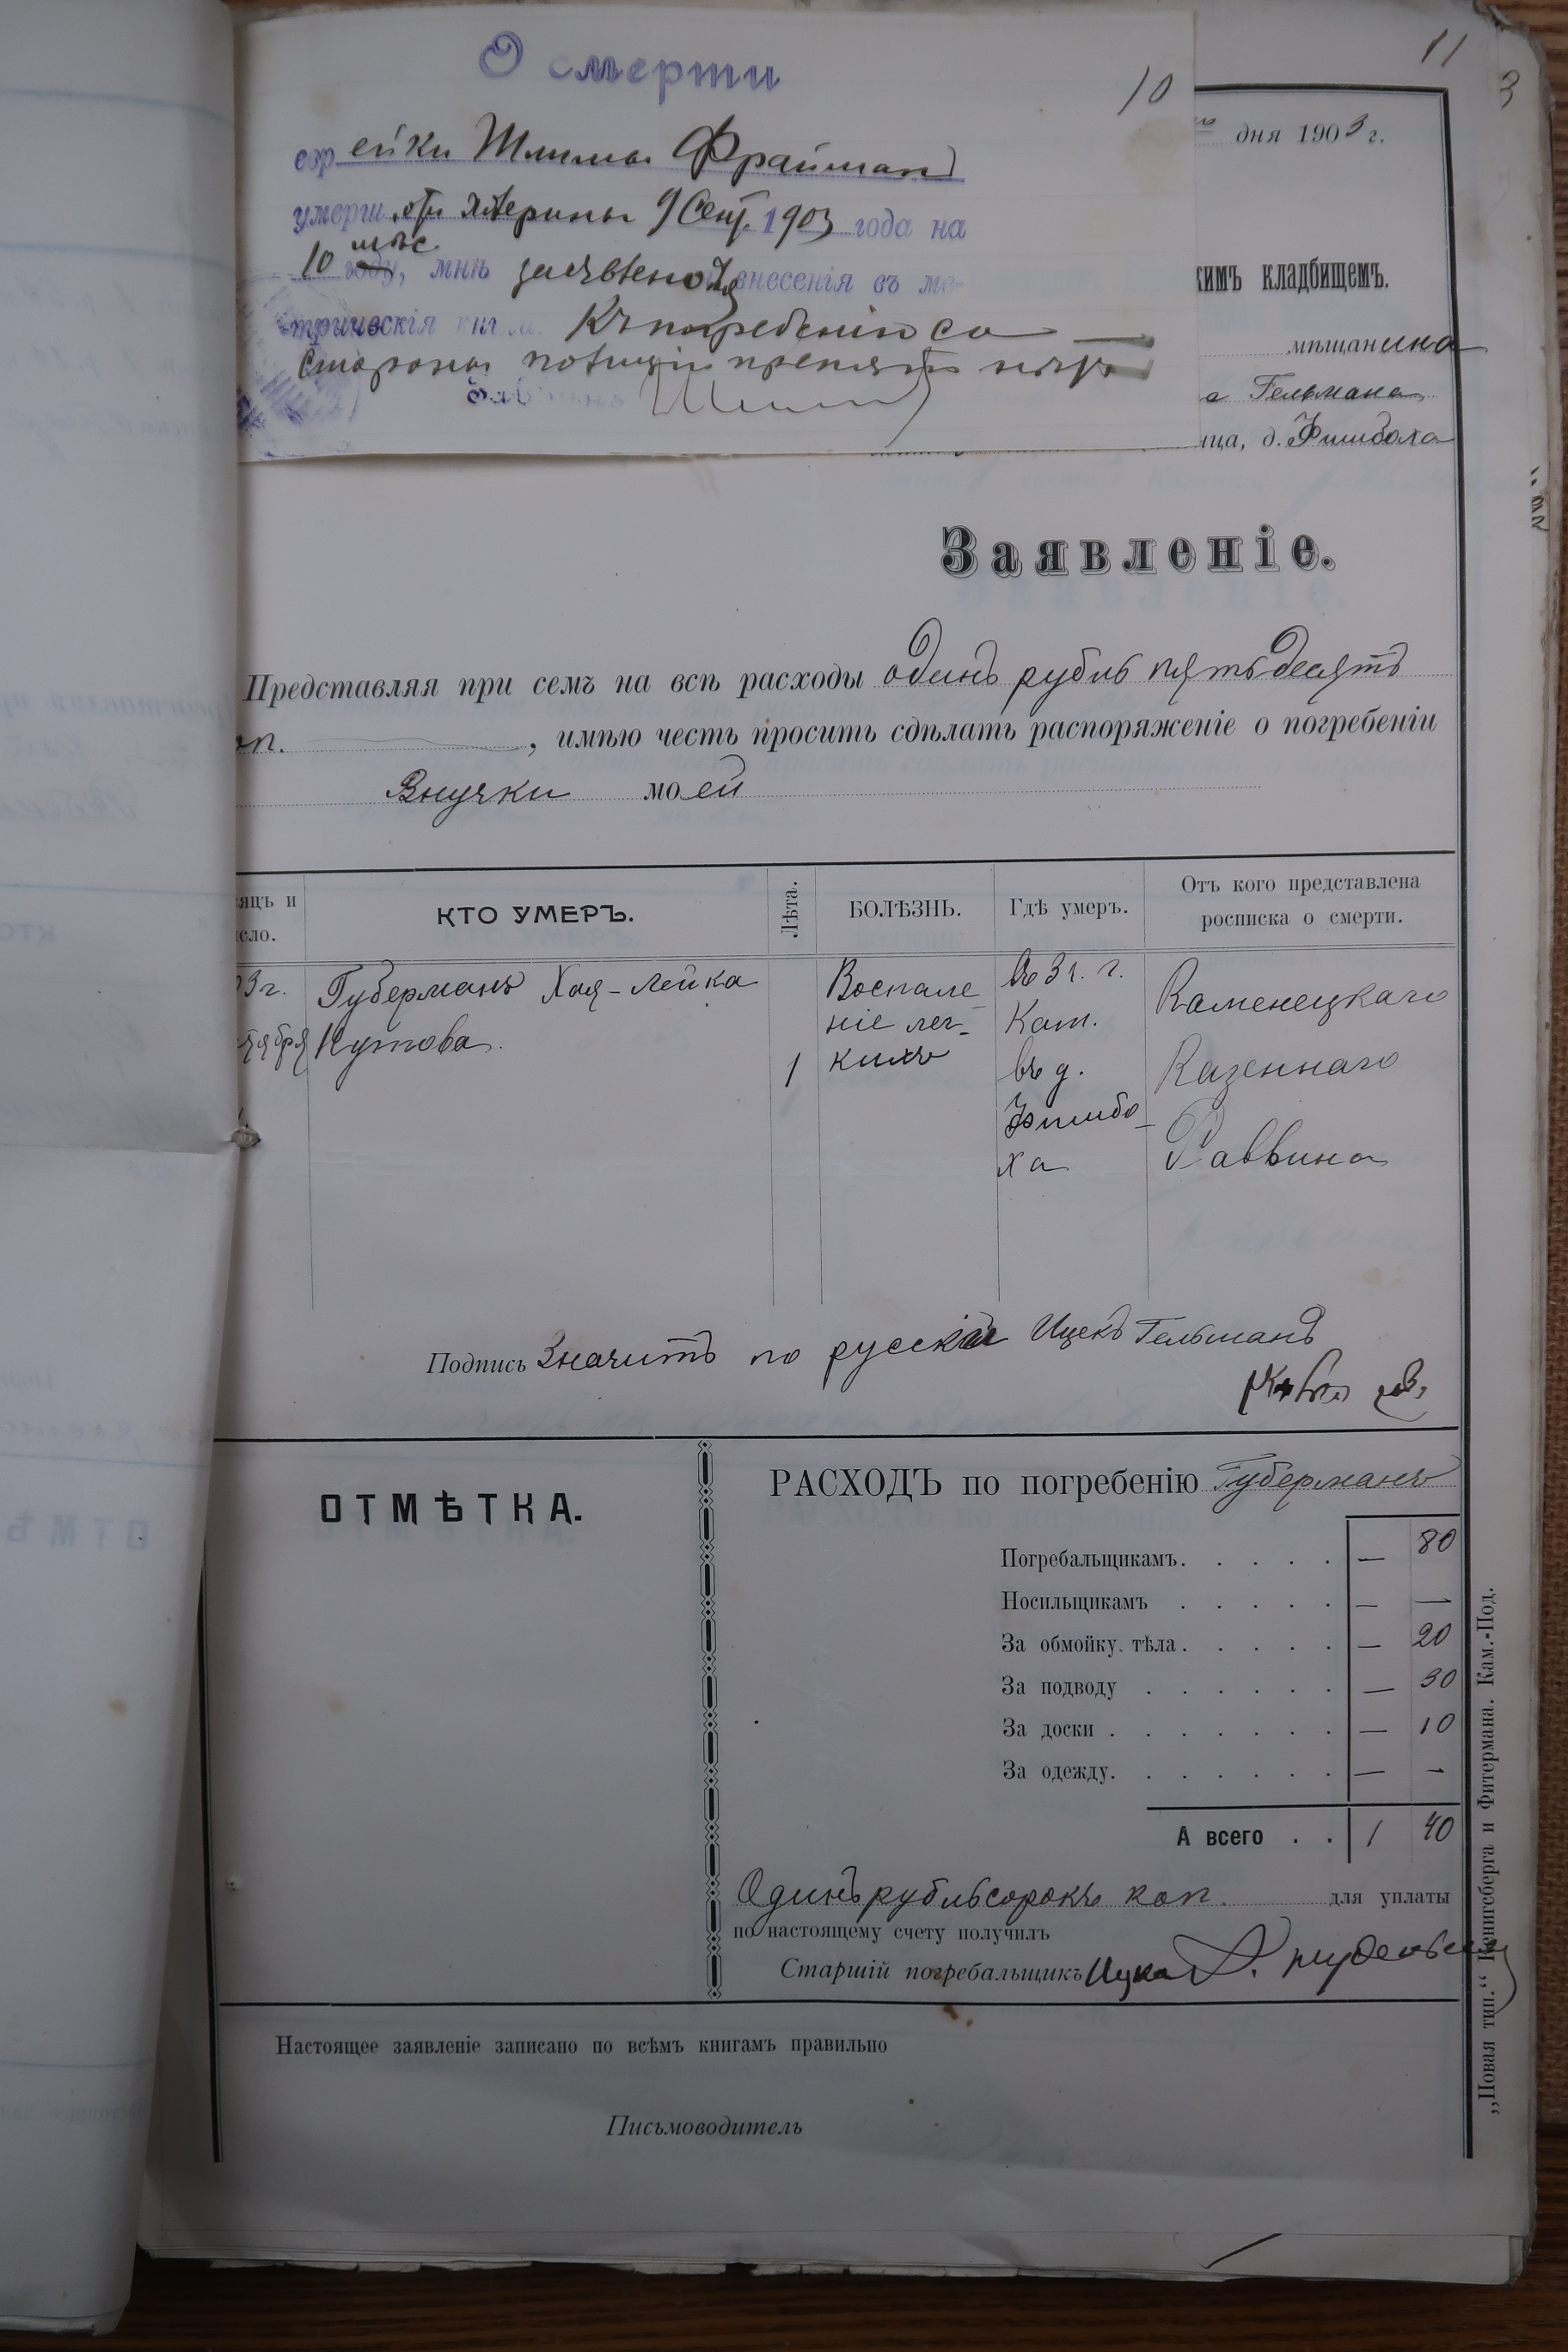 11
3
О смерти
10
еврейки Шлимы Фрайман
умерш. от 9 Сент. 1903 года на
10 мѣс. году, мнѣ заявлено для внесенія въ ме-
трическія книги. Къ погребенію со
стороны полиціи препятст нѣтъ
дня 1903 г.
кимъ кладбищемъ.
мѣщанина
а Гельмана
ица, д. Фишбаха
Заявленіе.
Представляя при семъ на всѣ расходы одинъ рубль пятьдесятъ
оп. , имѣю честь просить сдѣлать распоряженіе о погребеніи
Внучки моей
яцъ и
сло.
КТО УМЕРЪ.
Лѣта.
БОЛѢЗНЬ.
Гдѣ умеръ.
Отъ кого представлена
росписка о смерти.
3 г.
тября
Губерманъ Хая-Лейка
Нутова.
1
Воспале
ніе лег-
кихъ
въ 3 ч. г.
Кам.
въ д.
Фишба-
ха
Каменецкаго
Казеннаго
Раввина
Подпись Значитъ по русски Ицекъ Гельманъ
ОТМѢТКА.
РАСХОДЪ по погребенію Губерманъ
Погребальщикамъ. . . . . — 80
Носильщикамъ . . . . . — —
За обмойку тѣла. . . . . — 20
За подводу . . . . . . — 30
За доски . . . . . . . — 10
За одежду. . . . . . . — -
А всего . . 1 40
Одинъ рубль сорокъ коп. для уплаты
по настоящему счету получилъ
Старшій погребальщикъ Ицка
Настоящее заявленіе записано по всѣмъ книгамъ правильно
Письмоводитель
„Новая тип.“ Кенигсберга и Фитермана. Кам.-Под.